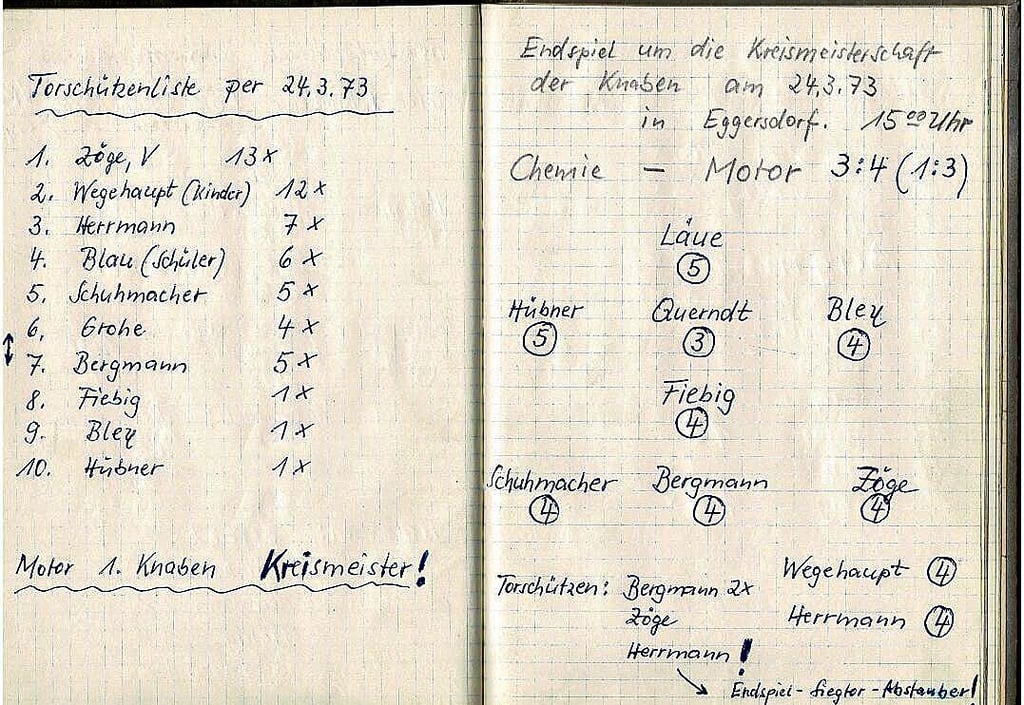 Torschützenliste per 24.3.73
1. Zöge, V 13x
2. Wegehaupt (Kinder) 12x
3. Herrmann 7x
4. Blau (Schüler) 6x
5. Schuhmacher 5x
6. Grohe 4x
↕
7. Bergmann 5x
8. Fiebig 1x
9. Bley 1x
10. Hübner 1x
Motor 1. Knaben Kreismeister!
Endspiel um die Kreismeisterschaft
der Knaben am 24.3.73
in Eggersdorf. 15⁰⁰ Uhr
Chemie – Motor 3:4 (1:3)
Läue
5
Hübner Querndt Bley
5 3 4
Fiebig
4
Schuhmacher Bergmann Zöge
4 4 4
Wegehaupt 4
Torschützen: Bergmann 2x
Zöge Herrmann 4
Herrmann !
→ Endspiel-Siegtor-Abstauber!